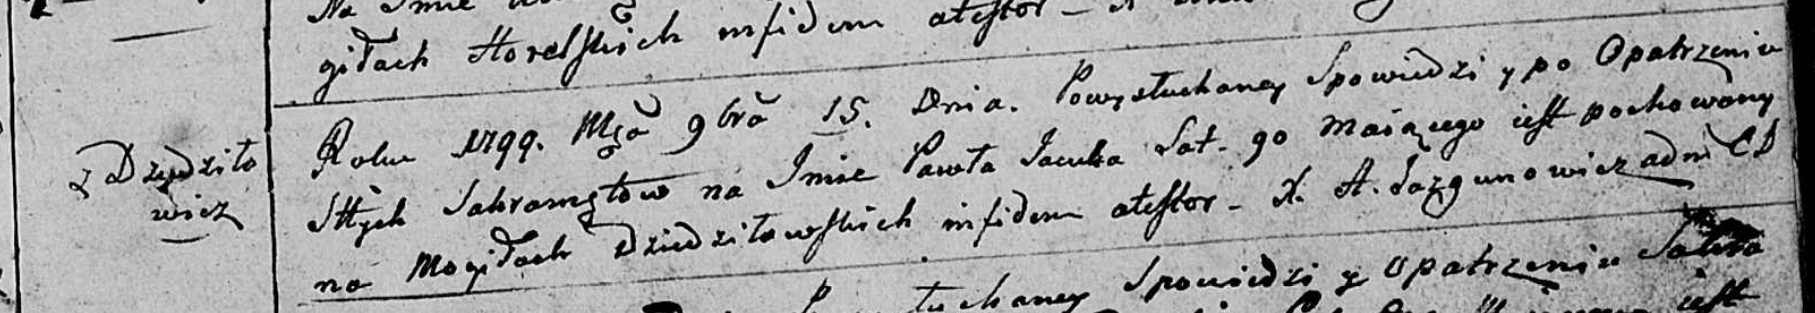 Na Imie
giłach Horelskich in fidem atestor - X
z Dziedziło
wicz
Roku 1799. Mca 9bra 15. Dnia. Powysłuchaney Spowiedzi y po Opatrzeniu
Sttych Sakramętow na Imie Pawła Jacuka Lat - 90 maiącego iest pochowany
na Mogiłach Dziedziłowskich in fidem atestor - X. A. Łazgunowicz adm C D
tuchaney Spowiedzi y Opatrzeniu Sakra
iest